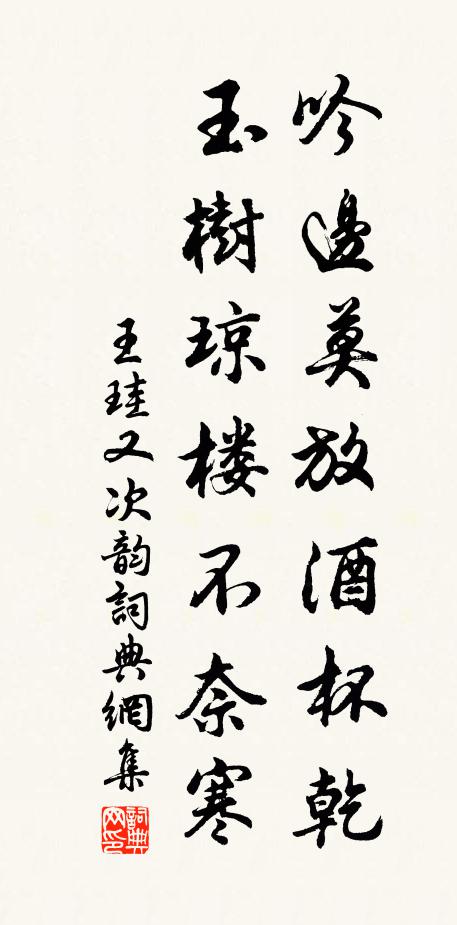 吟邊莫放酒杯乾
玉樹琼楼不奈寒
王珪又次韵詞典網集
詞典网印